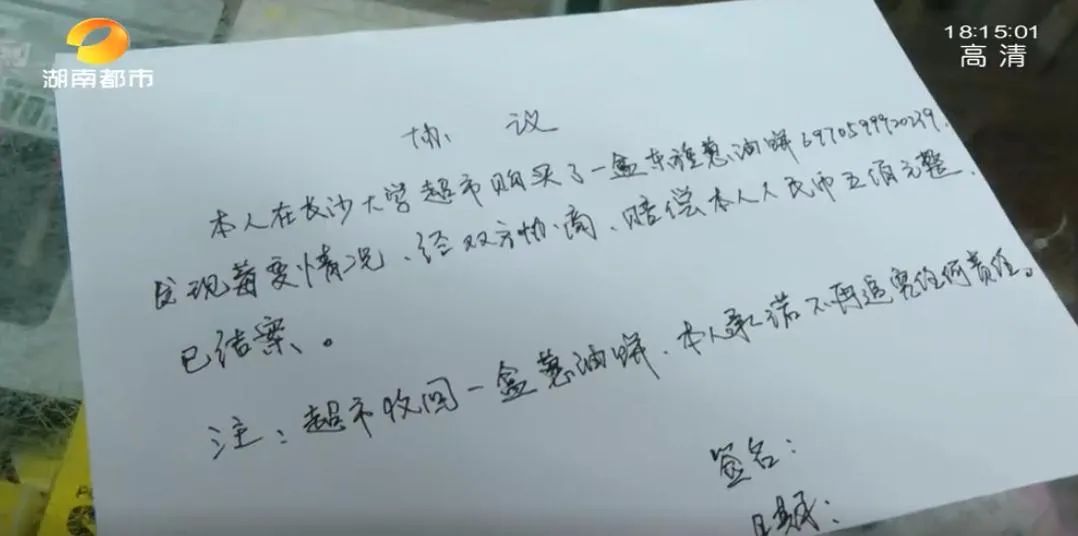 湖南都市
18:15:01
高清
协 议
本人在长沙大学超市购买了一盒东雅葱油饼6970599920239.
发现莓变情况、经双方协商、赔偿本人人民币五佰元整.
已结案、。
注:超市收回一盒葱油饼.本人承诺不再追究任何责任。
签名:
日期: